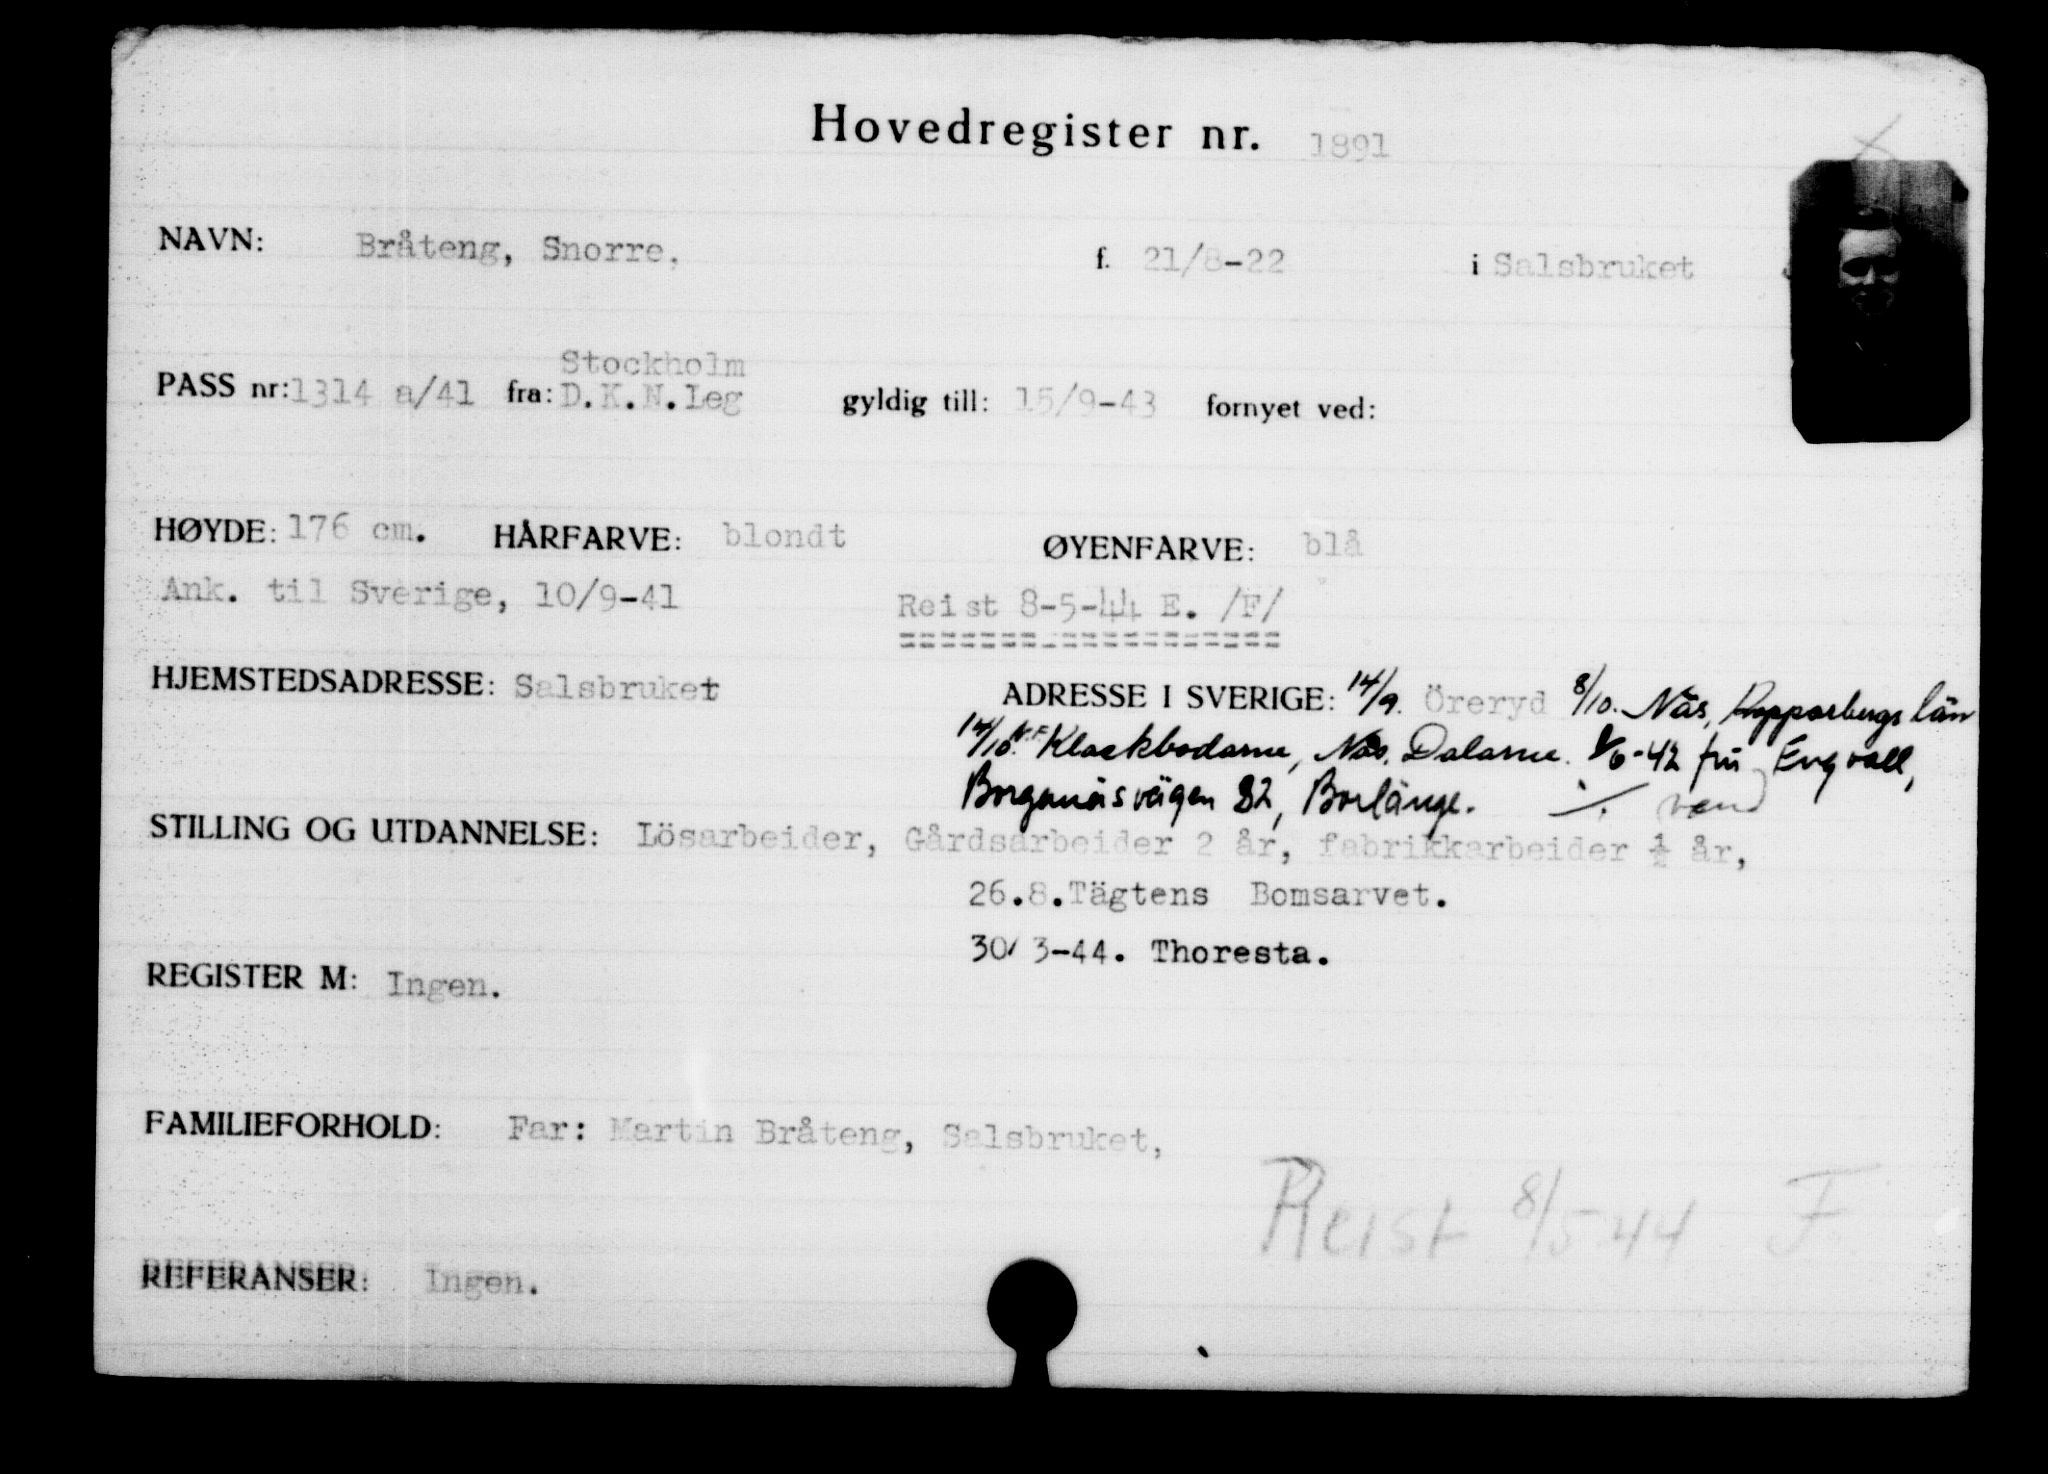 Hovedregister nr. 1891
NAVN: Bråteng, Snorre. f. 21/8-22 i Salsbruket
Stockholm
PASS nr: 1314 a/41 fra: D.K.N.Leg gyldig till: 15/9-43 fornyet ved:
HØYDE: 176 cm. HÅRFARVE: blondt ØYENFARVE: blå
Ank. til Sverige, 10/9-41 Reist 8-5-44 E. /F/
====================
HJEMSTEDSADRESSE: Salsbruket ADRESSE I SVERIGE: 14/9. Öreryd 8/10. Nås, Kopparbergs län
14/10. N.F. Klackbodarne, Nås, Dalarne. 1/6-42 fru Engvall,
Borganäsvägen 82, Borlänge. ./. vend
STILLING OG UTDANNELSE: Lösarbeider, Gårdsarbeider 2 år, fabrikkarbeider ½ år,
26.8.Tägtens Bomsarvet.
30/3-44. Thoresta.
REGISTER M: Ingen.
FAMILIEFORHOLD: Far: Martin Bråteng, Salsbruket,
Reist 8/5 44 F.
REFERANSER: Ingen.